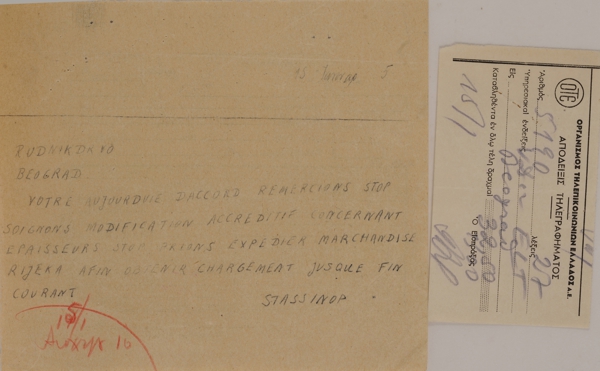 15
RUDNIKDRVO
BEOGRAD
VOTRE AUJOURDUIE DACCORD REMERCIONS STOP
SOIGNONS MODIFICATION ACCREDITIF CONCERNANT
EPAISSEURS STOP PRIONS EXPEDIER MARCHANDISE
RIJEKA AFIN OBTENIR CHARGEMENT JUSQUE FIN
COURANT
STASSINOP
15/1
16
ΟΤΕ
ΟΡΓΑΝΙΣΜΟΣ ΤΗΛΕΠΙΚΟΙΝΩΝΙΩΝ ΕΛΛΑΔΟΣ Α.Ε.
ΑΠΟΔΕΙΞΙΣ ΤΗΛΕΓΡΑΦΗΜΑΤΟΣ
Ἀριθμὸς 5190 λέξεις 27
Ὑπηρεσιακαὶ ἐνδείξεις
Εἰς Beograd
Κατεβλήθησαν ἐν ὅλῳ τέλη δραχμαί
Ὁ Εἰσπράξας
15/1